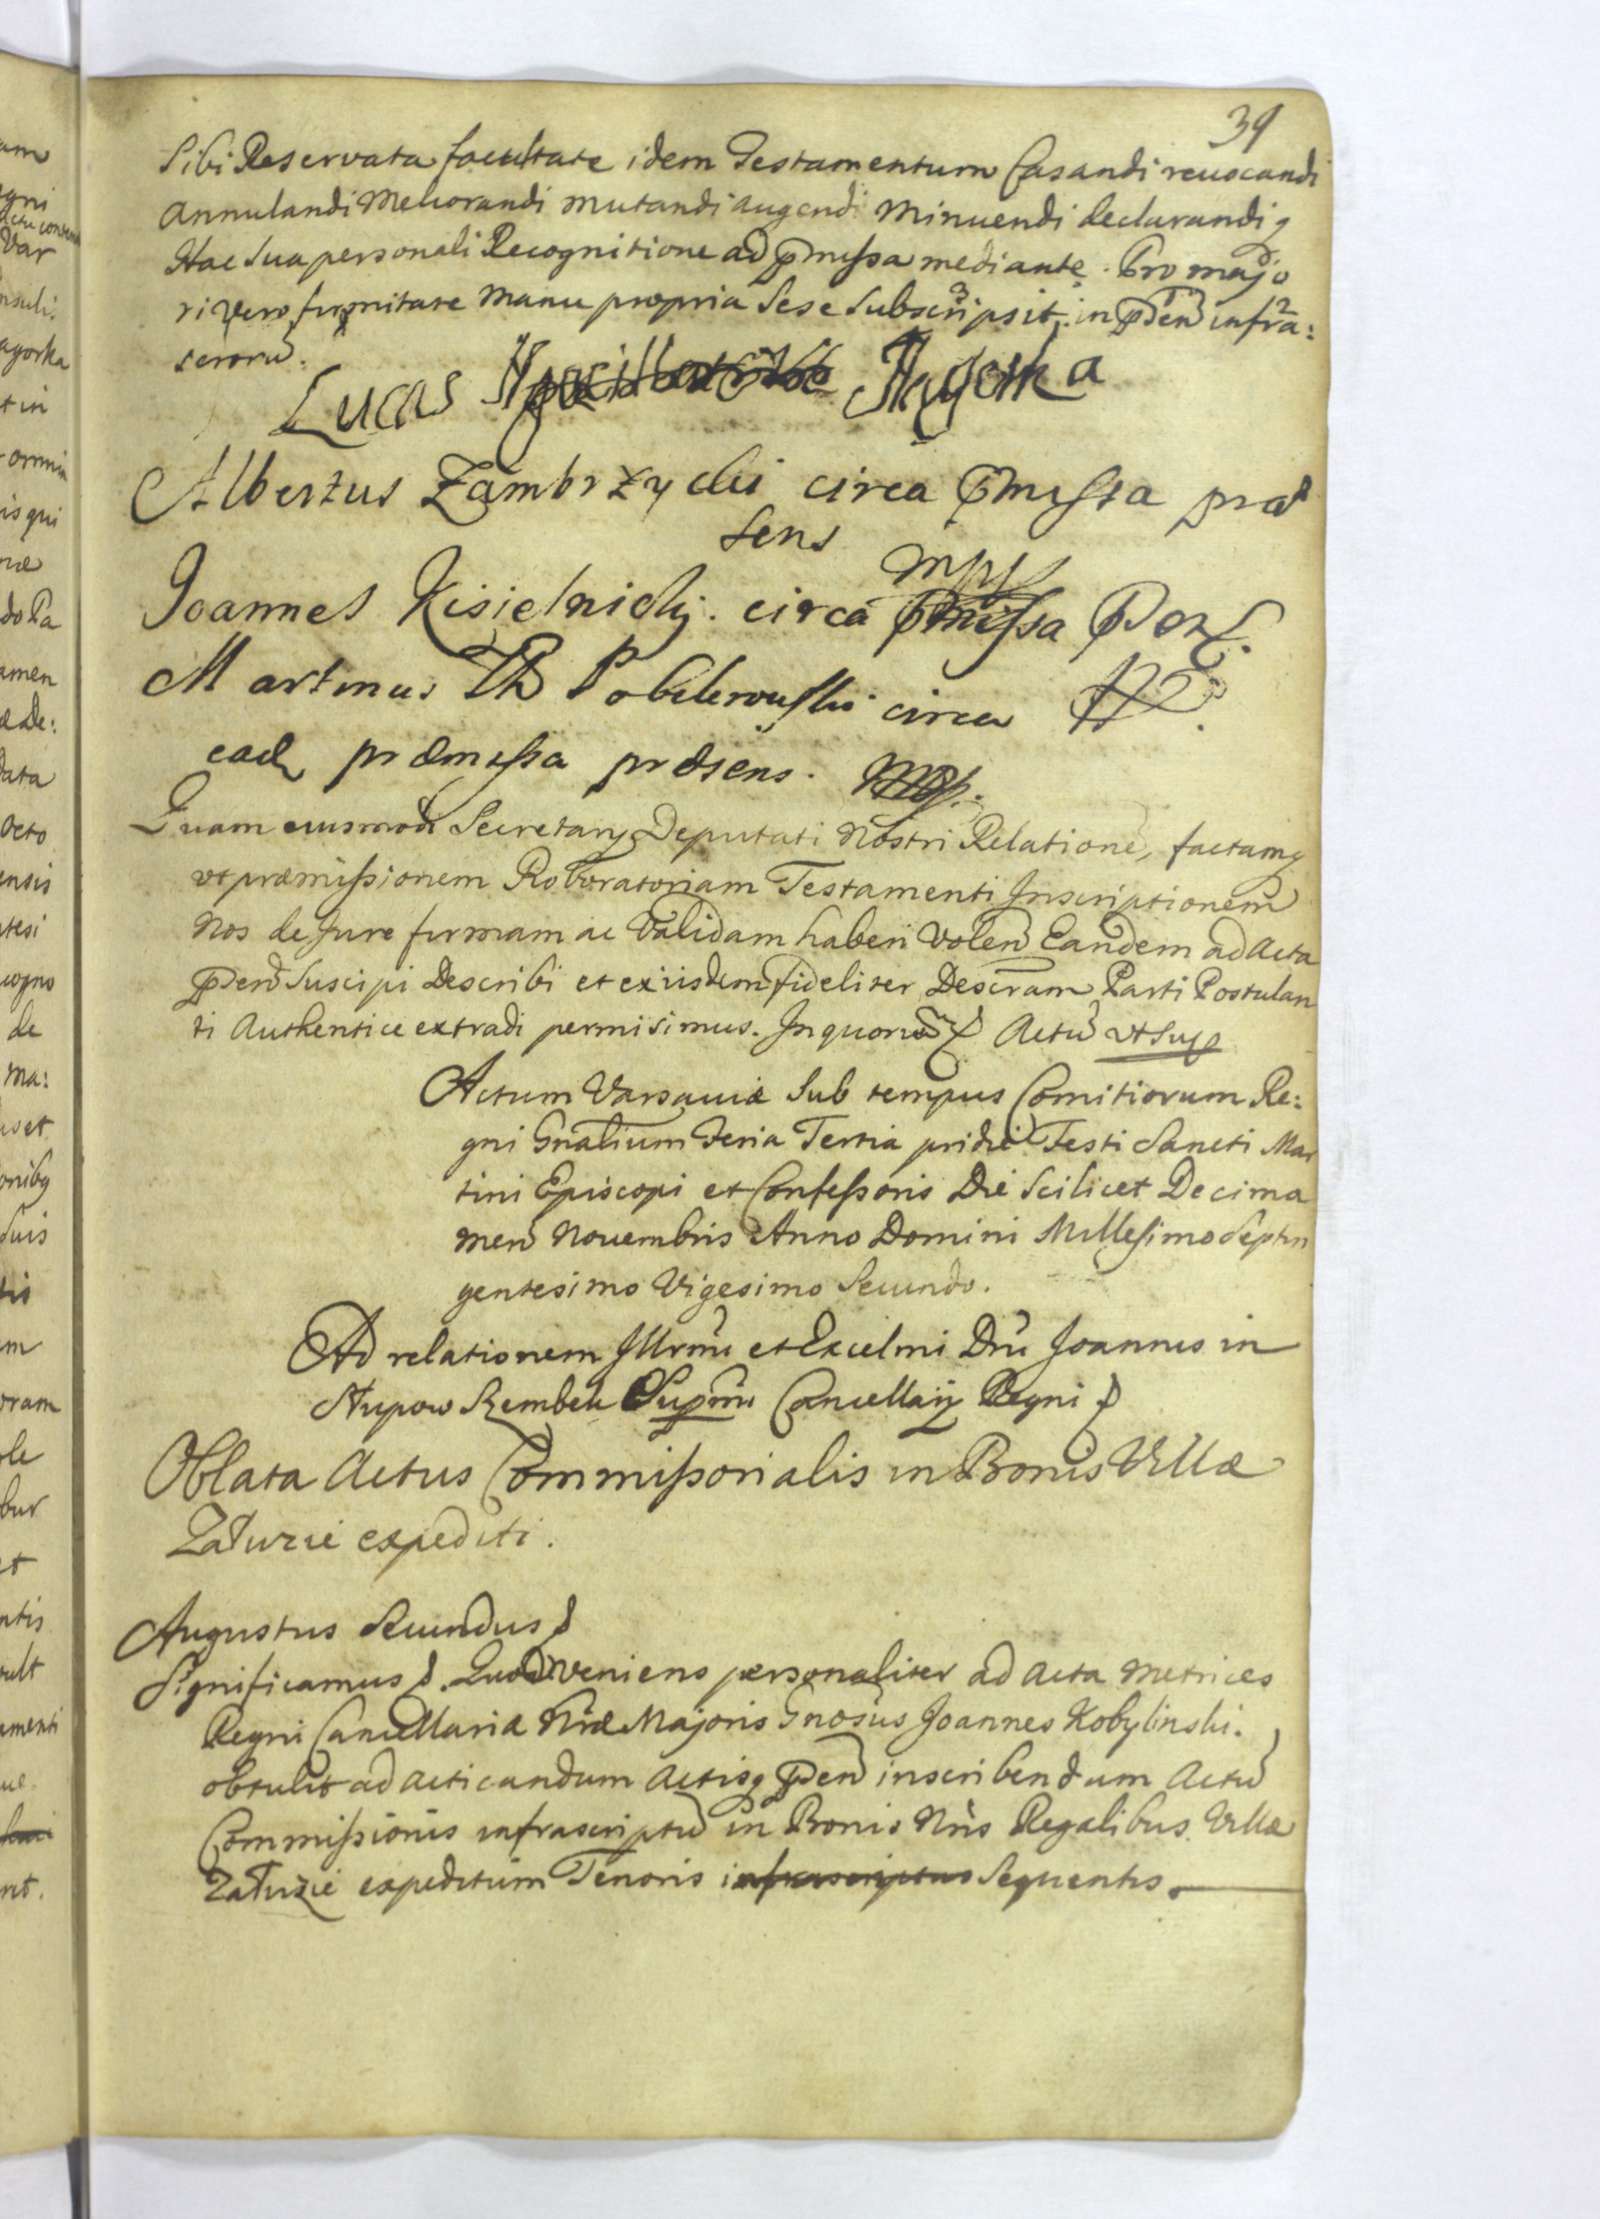 39
Sibi Reservata facultate idem Testamentum Casandi reuocandi
Annulandi Meliorandi mutandi augendi Minuendi declarandiq
Hac Sua personali Recognitione ad pmissa mediante. Pro majo
ri vero firmitate Manu propria Sese Subscripsit. in pñten infra:
scrorũ.
Lucas Jagorka
Albertus Zambrzycki circa pmissa præ
sens mpp
Joannes Kisielnickj. circa pmissa pñs
Martinus Pobelerouski circa
eadẽ præmissa præsens. mpp.
Quam eiusmodi Secretarij Deputati Nostri Relationẽ, factamq
vt præmissionem Roboratoriam Testamenti Inscriptionem
Nos de Jure firmam ac Validam haberi Volen Eandem ad Acta
pñten Suscipi Describi et ex iisdem fideliter Descram Parti Postulan
ti Authentice extradi permisimus. In quorũ Actũ vt Sup
Actum Varsauiæ Sub tempus Comitiorum Re:
gni Gñalium Feria Tertia pridie Festi Sancti Mar
tini Episcopi et Confessoris Die Scilicet Decima
Men Nouembris Anno Domini Millesimo Septin
gentesimo Vigesimo Secundo.
Ad relationem Illrmi et Excelmi Dñi Joannis in
Słupow Szembek Supmi Cancellarij Regni
Oblata Actus Commissorialis in Bonis Villæ
Załuzie expediti.
Augustus Secundus
Significamus. Quod Veniens personaliter ad Acta Metrices
Regni Cancellariæ Nræ Majoris Gnosus Joannes Kobylinski.
obtulit ad acticandum Actisq pñten inscribendum Actũ
Commissionis infrascriptũ in Bonis Nris Regalibus Villæ
Załuzie expeditum Tenoris infrascriptus Sequentis.